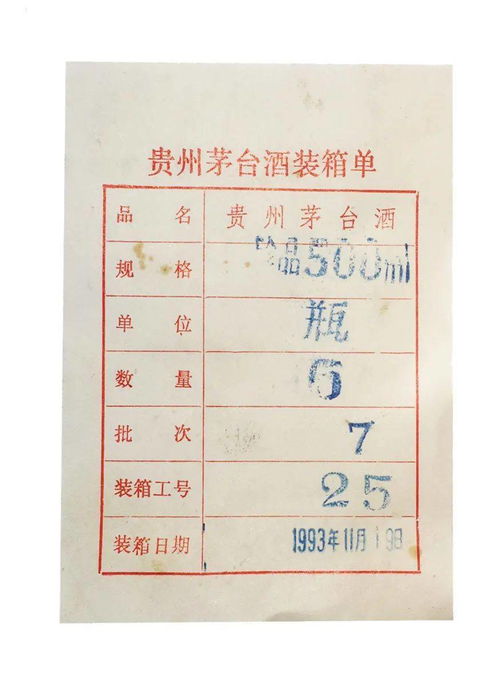 贵州茅台酒装箱单
品名 贵州茅台酒
规格 品500ml
单位 瓶
数量 6
批次 7
装箱工号 25
装箱日期 1993年11月19日